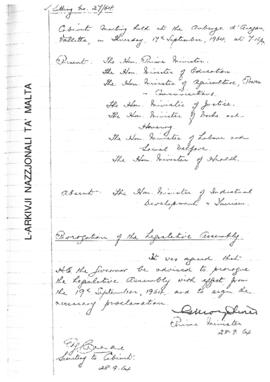 Meeting No. 27/64
Cabinet Meeting held at the Auberge d'Aragon,
Valletta, on Thursday, 17th September, 1964, at
Present: The Hon. Prime Minister.
The Hon. Minister of Education
The Hon. Minister of Agriculture, Power
& Communications.
The Hon. Minister of Justice.
The Hon. Minister of Works and
Housing
The Hon. Minister of Labour and
Social Welfare
The Hon. Minister of Health.
Absent: The Hon. Minister of Industrial
Development & Tourism.
Prorogation of the Legislative Assembly.
It was agreed that
the Governor be advised to prorogue
the Legislative Assembly with effect from
the 19th September, 1964, and to sign the
necessary proclamation
Prime Minister
28.9.64
Secretary to Cabinet
28.9.64
L-ARKIVJI NAZZJONALI TA' MALTA